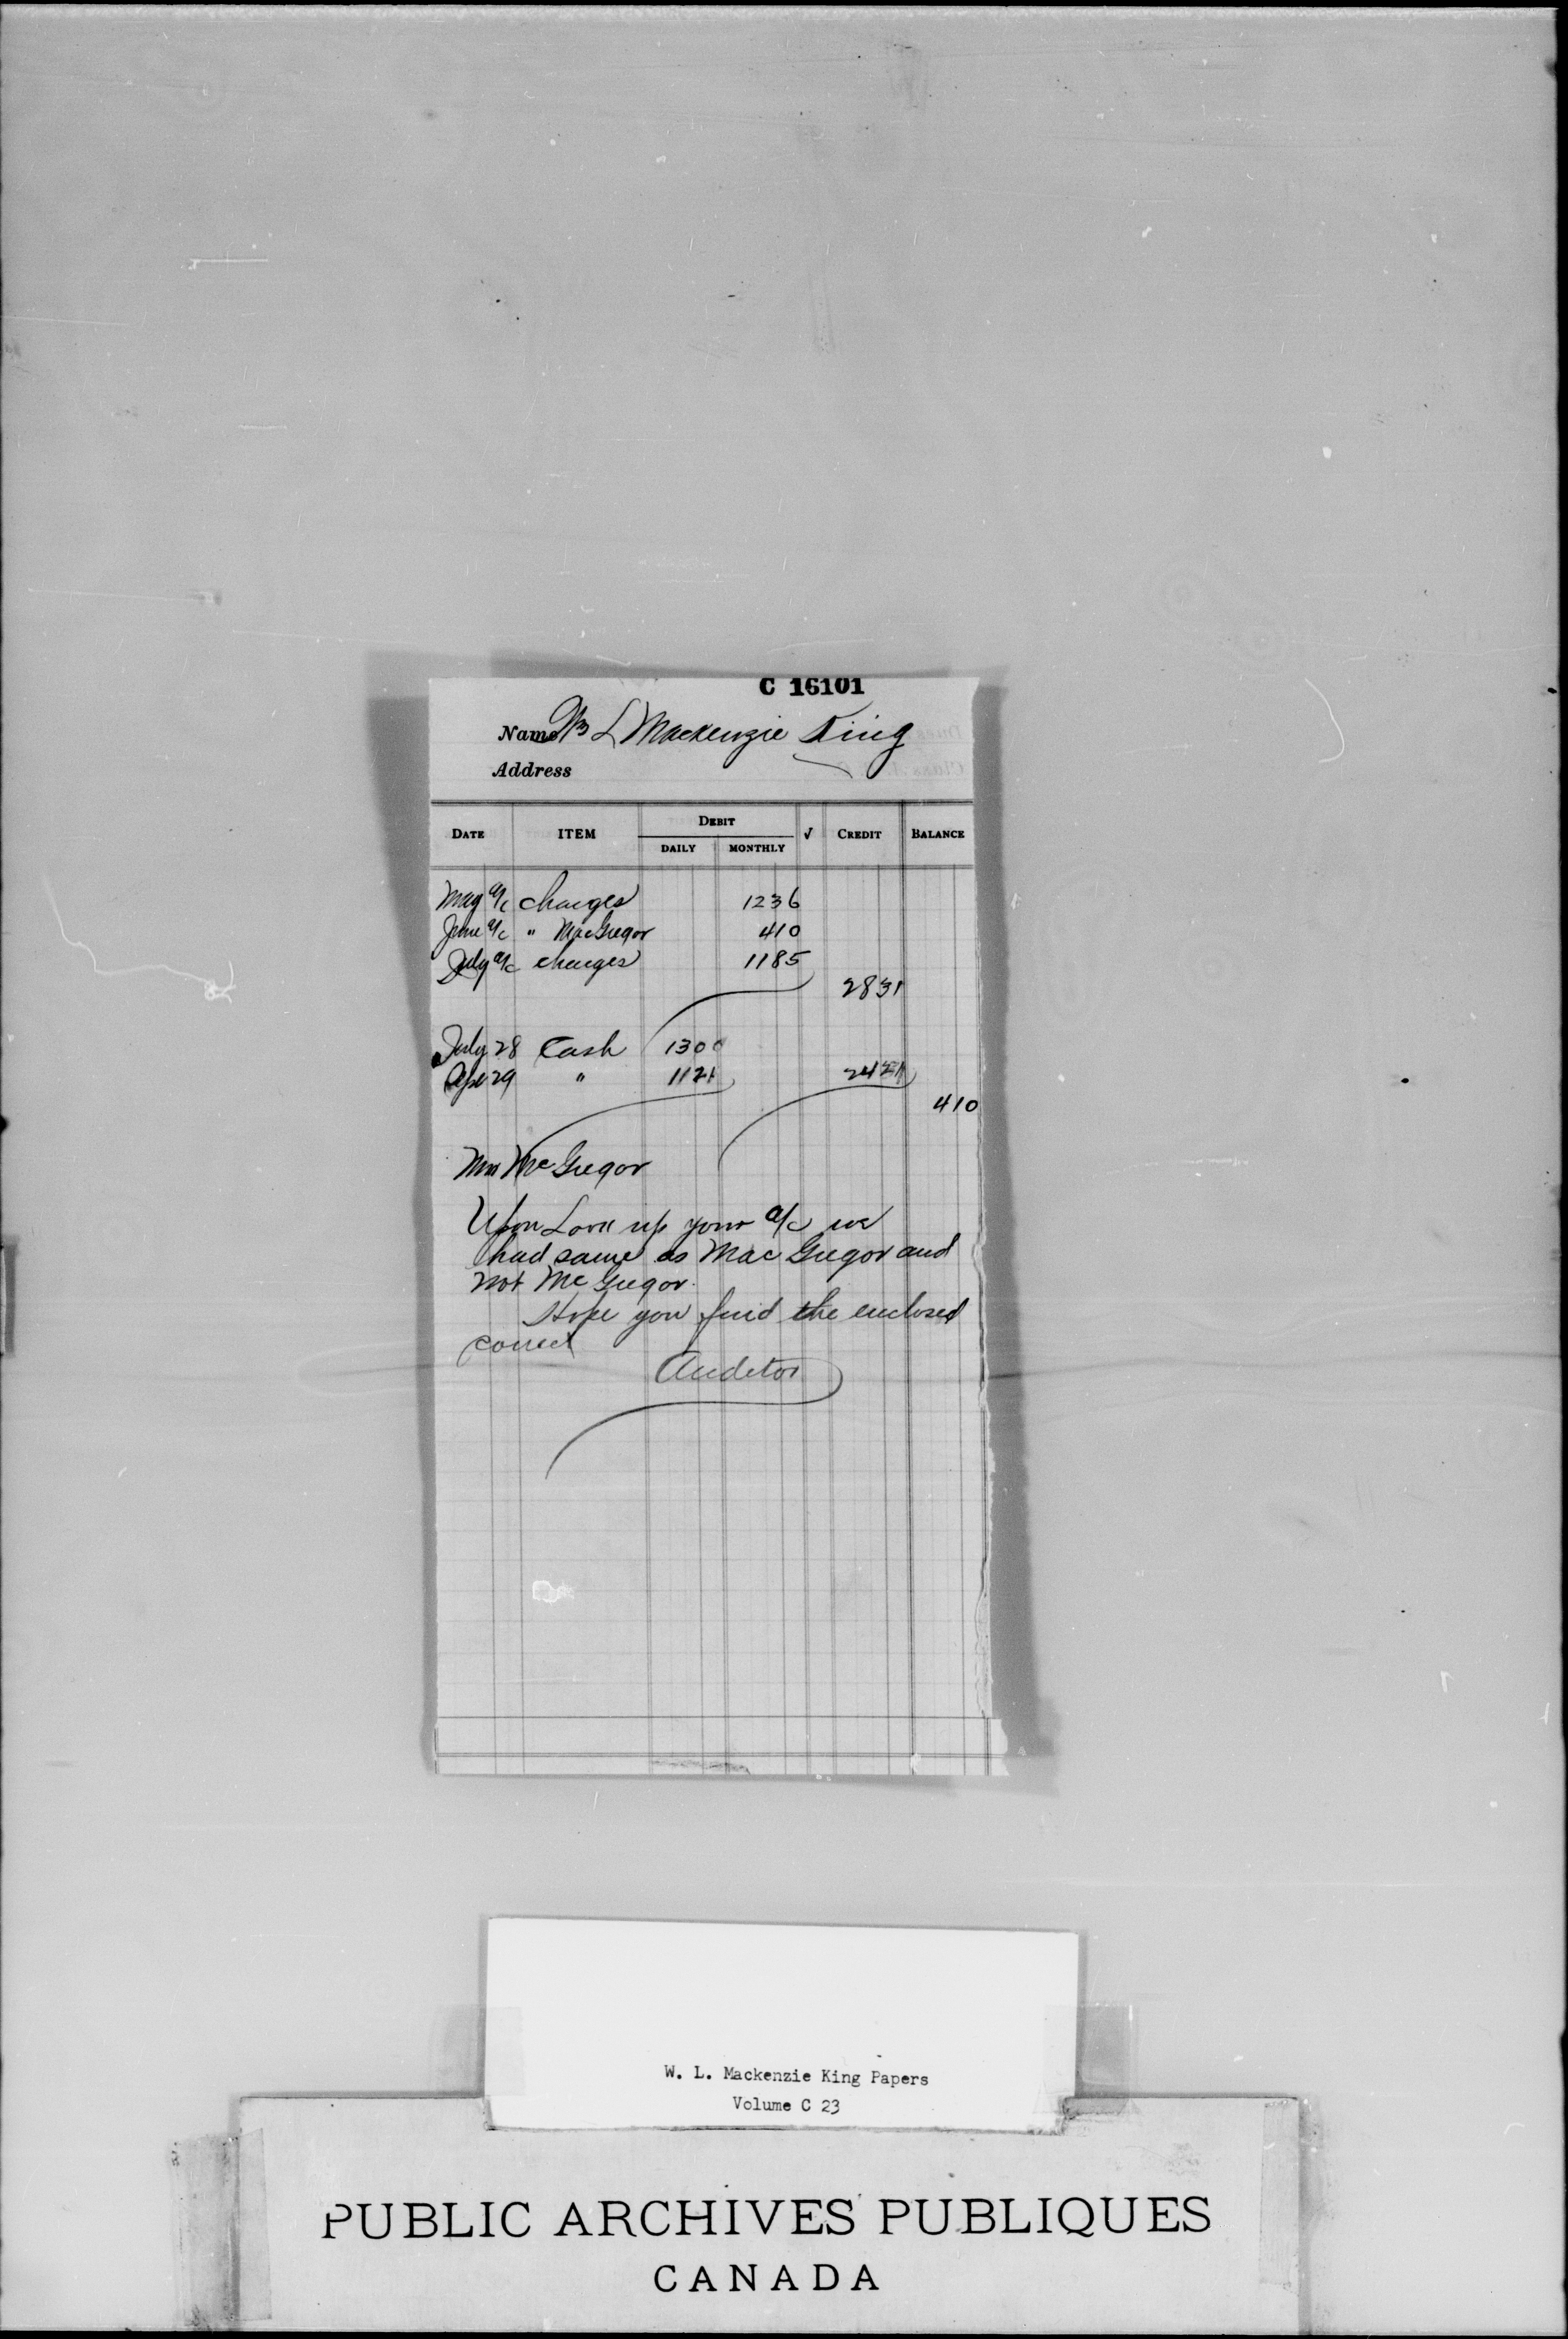 C 16101
Name Wm L Mackenzie King
Address
DATE ITEM DEBIT √ CREDIT BALANCE
DAILY MONTHLY
May a/c charges 1236
June a/c " MacGregor 410
July a/c charges 1185
2831
July 28 Cash 1300
29 " 1121 2421
410
McGregor
Upon Look up your a/c we
had same as Mac Gregor and
not Mc Gregor.
Hope you find the enclosed
correct
Auditor
W. L. Mackenzie King Papers
Volume C 23
PUBLIC ARCHIVES PUBLIQUES
CANADA